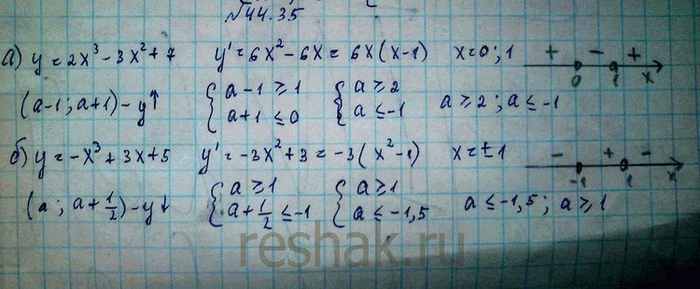 №44.35
а) y = 2x³ - 3x² + 7 y' = 6x² - 6x = 6x(x-1) x=0; 1 + - + 0 1 x
(a-1; a+1) - y↑ { a-1 ≥ 1 { a ≥ 2
a+1 ≤ 0 a ≤ -1 a ≥ 2; a ≤ -1
б) y = -x³ + 3x + 5 y' = -3x² + 3 = -3(x²-1) x = ±1 - + - -1 1 x
(a; a + 1/2) - y↓ { a ≥ 1 { a ≥ 1
a + 1/2 ≤ -1 a ≤ -1,5 a ≤ -1,5; a ≥ 1
reshak.ru